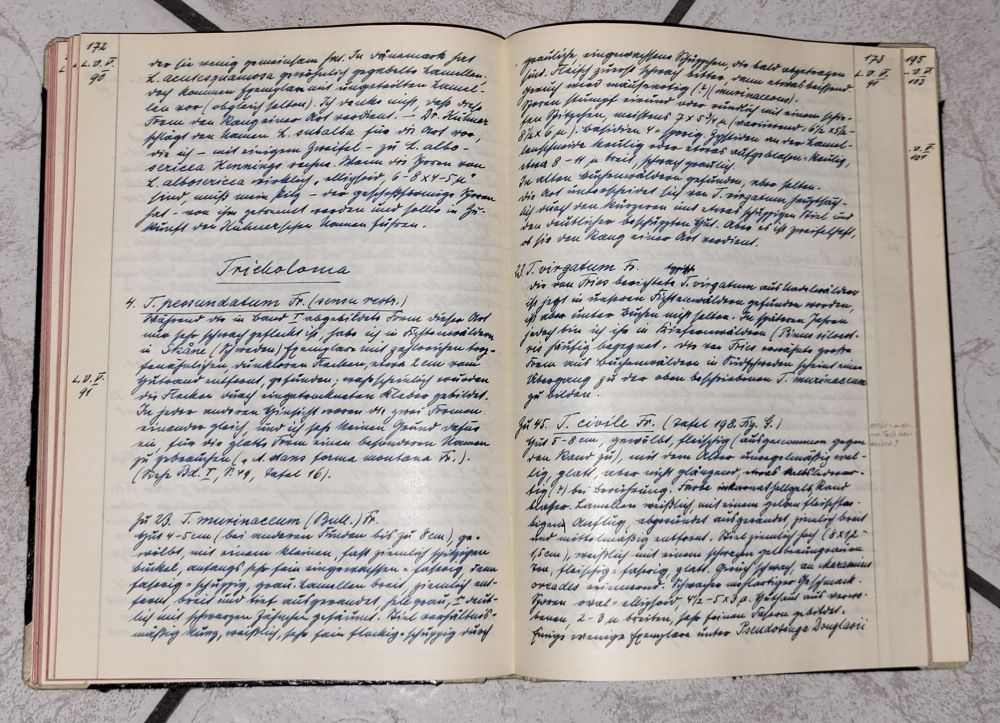 172
L. V. V.
90
der sie wenig gemeinsam hat. In Dänemark hat
L. acutesquamosa gewöhnlich gegabelte Lamellen.
doch kommen Exemplare mit ungeteilten Lamel-
len vor (obgleich selten). Ich denke nicht, dass diese
Form den Rang einer Art verdient. — Dr. Kühner
schlägt den Namen L. subalba für die Art vor,
die ich – mit einigem Zweifel – zu L. albo-
sericea Hennings rechne. Wenn die Sporen von
L. albosericea wirklich „ellipsoid, 6-8 x 4-5 µ"
sind, muß mein Pilz – der geschoßförmige Sporen
hat – von ihr getrennt werden und sollte in Zu-
kunft den Kühnerschen Namen führen.
Tricholoma
4. T. pessundatum Fr. (sensu restr.)
Während die in Band I abgebildete Form dieser Art
nur sehr schwach gefleckt ist, habe ich in Fichtenwäldern
in Skåne (Schweden) Exemplare mit zahlreichen trop-
fenähnlichen dunkleren Flecken, etwa 2 cm vom
Hutrand entfernt, gefunden; wahrscheinlich wurden
die Flecken durch eingetrockneten Kleber gebildet.
In jeder anderen Hinsicht waren die zwei Formen
einander gleich, und ich sehe keinen Grund dafür
ein, für die glatte Form einen besonderen Namen
zu gebrauchen (v. A. dans forma montana Fr.).
(Siehe Bd. I, S. 49, Tafel 16).
L. V. V.
91
Zu 23. T. murinaceum (Bull.) Fr.
Hut 4-5 cm (bei anderen Funden bis zu 8 cm), ge-
wölbt, mit einem kleinen, fast ziemlich spitzigen
Buckel, anfangs sehr fein eingewachsen-faserig, dann
faserig-schuppig, grau. Lamellen breit, ziemlich ent-
fernt, breit und tief ausgerandet, hellgrau, ± deut-
lich mit schwarzen Zähnchen gesäumt. Stiel verhältnis-
mäßig kurz, weißlich, sehr fein flockig-schuppig durch
173
L. V. V.
91
gräuliche eingewachsene Schüppchen, die bald abgetragen
sind. Fleisch zuerst schwach bitter, dann etwas beißend
Geruch wird mausartig (:)(murinaceum).
Sporen stumpf eirund oder rundlich mit einem schie-
fen Spitzchen, meistens 7 x 5¾ µ (variierend: 6½ x 5½-
8½ x 6 µ). Basidien 4-sporig. Zystiden an der Lamel-
lenschneide keulig oder etwas aufgeblasen-keulig,
etwa 8-11 µ breit, schwach gräulich.
In alten Buchenwäldern gefunden, aber selten.
Die Art unterscheidet sich von T. virgatum hauptsäch-
lich durch den kürzeren und etwas schuppigen Stiel und
den deutlicher beschuppten Hut. Aber es ist zweifelhaft,
ob sie den Rang einer Art verdient.
23. T. virgatum Fr.
Die von Fries berichtete T. virgatum aus Nadelwäldern
ist jetzt in unseren Fichtenwäldern gefunden worden,
ist aber unter Buchen nicht selten. In späteren Jahren
jedoch bin ich ihr in Kiefernwäldern (Pinus silvest-
ris) häufig begegnet. Die von Fries erwähnte große
Form aus Buchenwäldern in Südschweden scheint einen
Übergang zu der oben beschriebenen T. murinaceum
zu bilden.
Zu 45. T. civile Fr. (Tafel 198. Fig. G.)
Hut 5-8 cm, gewölbt, fleischig (ausgenommen gegen
den Rand zu), mit dem Alter unregelmäßig wel-
lig, glatt, aber nicht glänzend,
tig (?) bei Berührung. Farbe hellgelb, Rand
blasser. Lamellen weißlich, mit einem gelben fleischfar-
bigen Anflug, abgerundet ausgerandet, ziemlich breit
und mittelmäßig entfernt. Stiel ziemlich hoch (8 x 1,2-
1,5 cm), weißlich mit einem schwachen gelbbräunlichen
Ton, fleischig-faserig, glatt. Geruch schwach, an Marasmius
oreades erinnernd. Schwacher mehlartiger Geschmack.
Sporen oval-ellipsoid, 4½-5 x 3 µ. Huthaut aus verwo-
benen, 2-3 µ breiten, sehr feinen Fasern gebildet.
Einige wenige Exemplare unter Pseudotsuga Douglasii
195
L. V. V.
103
L. V. V.
101